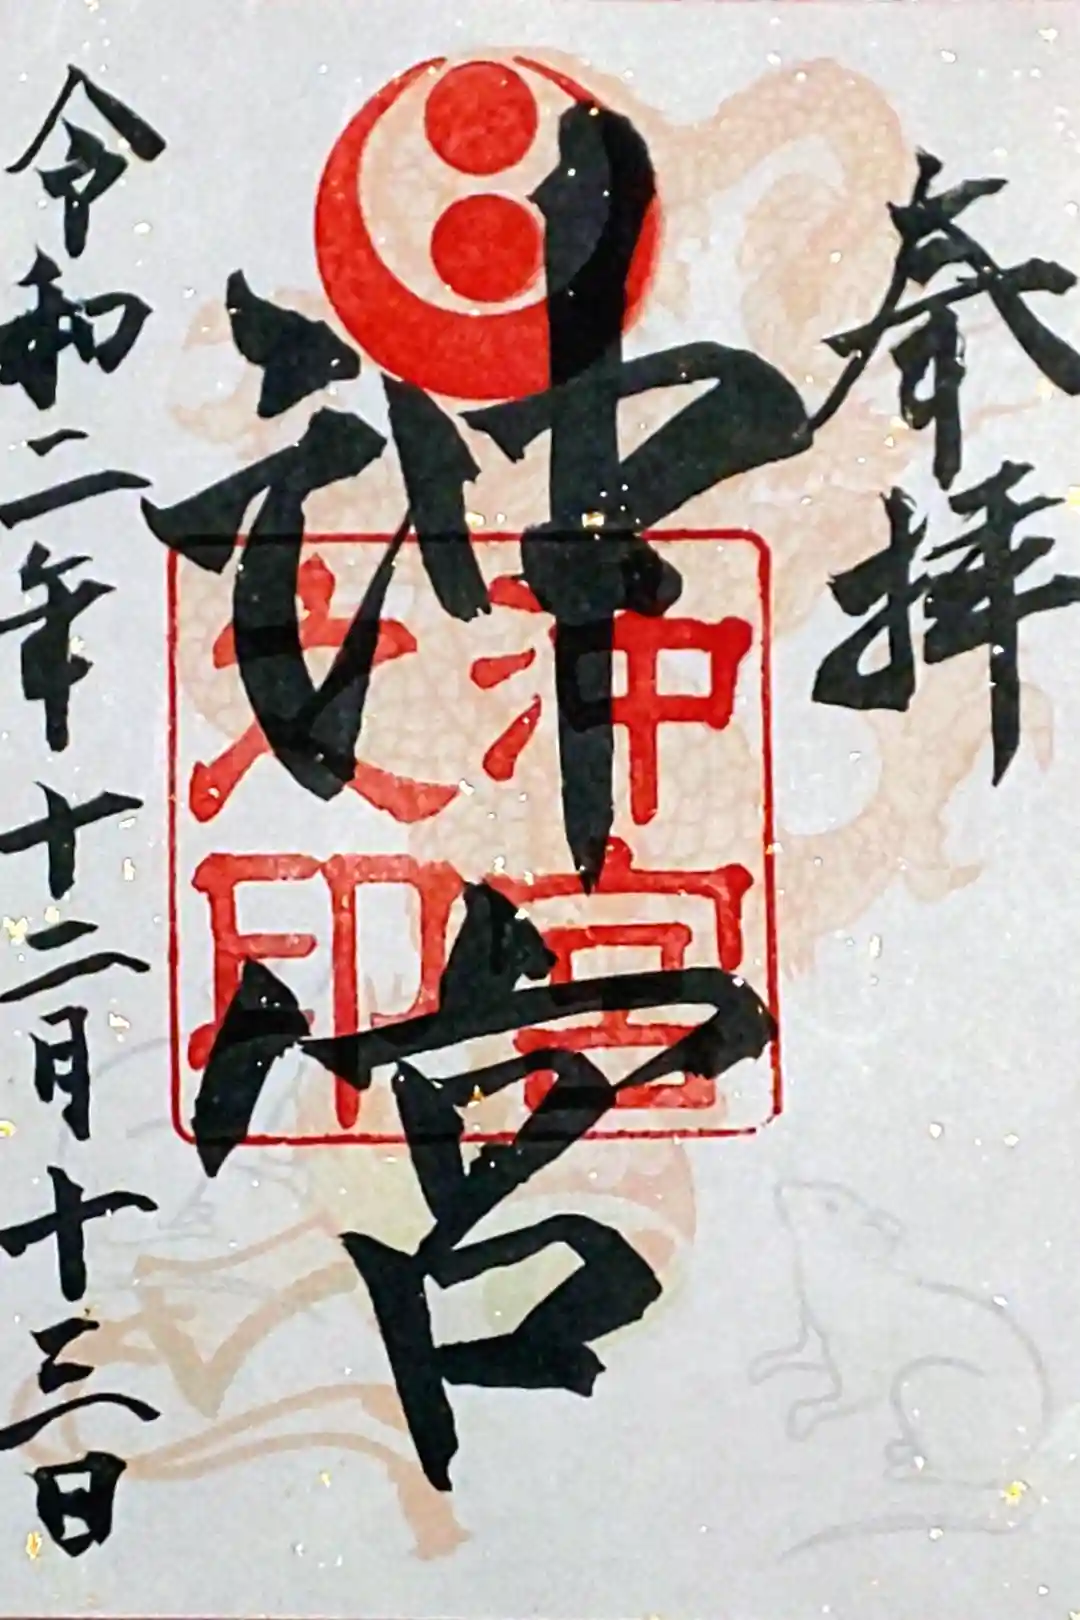 奉拝
沖宮
沖宮
之印
令和二年十二月十三日